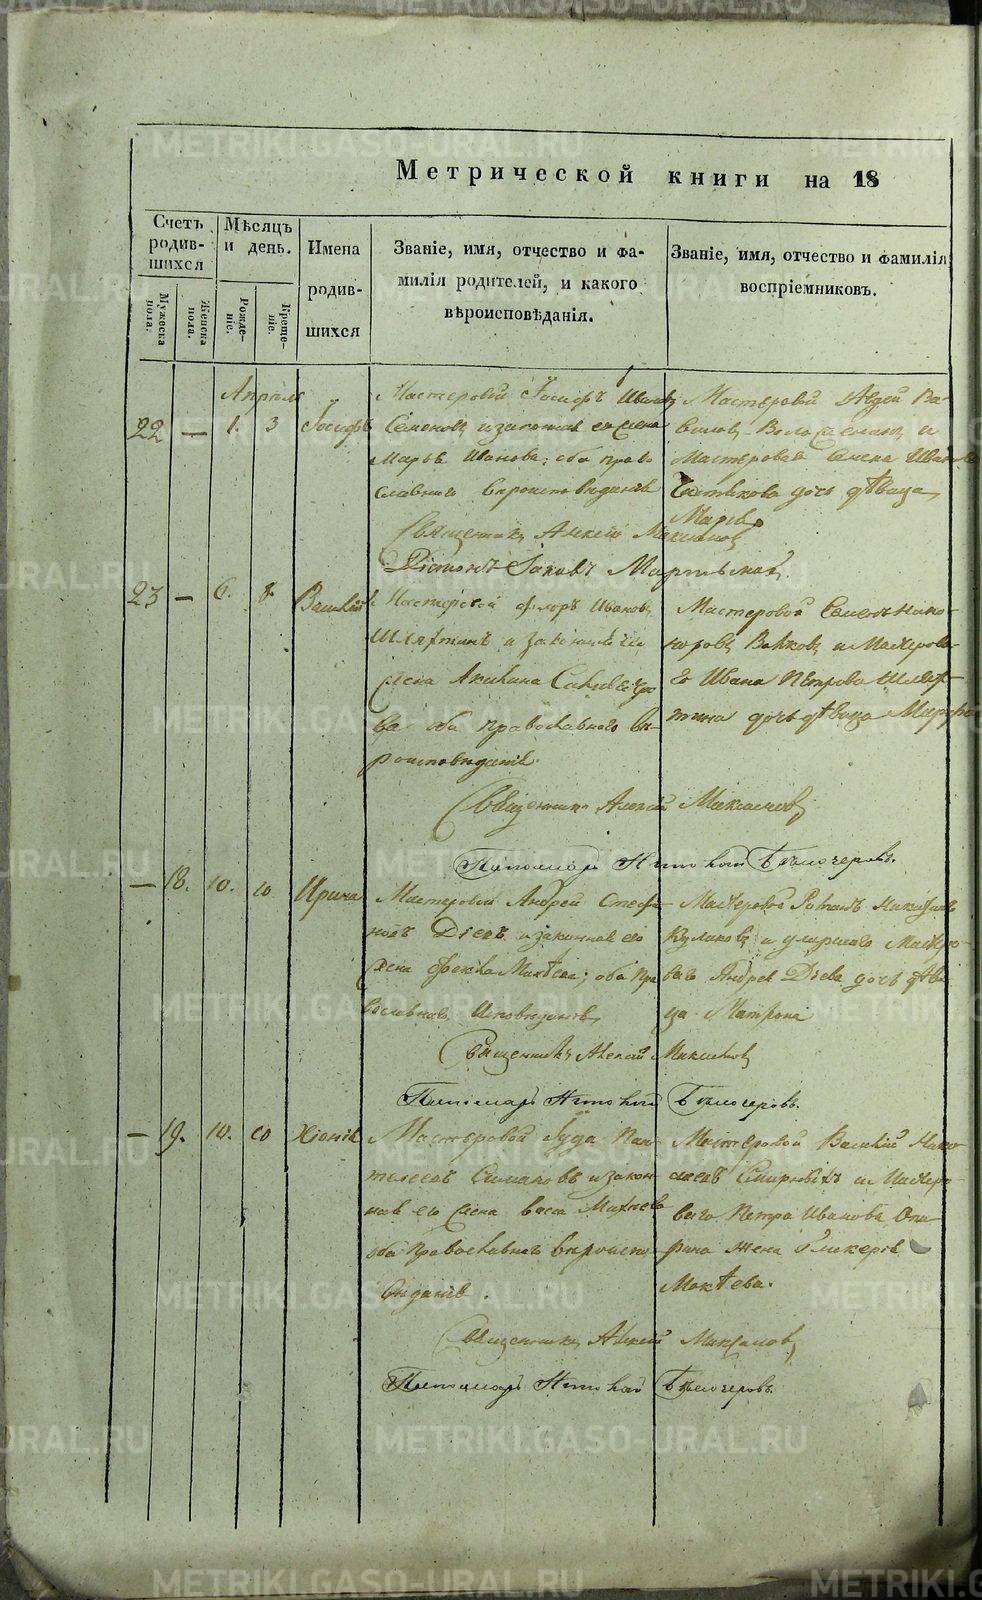 METRIKI.GASO-URAL.RU
Метрической книги на 18
Счетъ родив- шихся
Мѣсяцъ и день.
Имена родив- шихся
Званіе, имя, отчество и фа-
милія родителей, и какого
вѣроисповѣданія.
Званіе, имя, отчество и фамилія
воспріемниковъ.
Мужеска пола.
Женска пола.
Рожде- ніе.
Креще- ніе.
Апрѣль
22 — 1. 3 Іосифъ
Мастеровой Іосифъ Ивановъ
Семеновъ и законная его жена
Марья Иванова; оба право
славнаго вѣроисповѣданія
Мастеровой Авдей Ва-
виловъ и
Мастероваго Ивана
дочь дѣвица
Марья
Священникъ Алексій Максимовъ
Діаконъ Іаковъ
23 — 6. 8. Василій
Мастеровой Ивановъ
и законная его
жена Акилина
ва оба православнаго вѣ-
роисповѣданія.
Мастеровой Семенъ Нико-
норовъ Волковъ и Мастерова-
го Ивана Петрова
тина дочь дѣвица Марфа
Священникъ Алексій Максимовъ
Пономарь Николай Бѣлочеровъ.
— 18. 10. 10 Ирина
Мастеровой Андрей Стефа-
новъ Діевъ и законная его
жена Мокѣева; оба пра
вославнаго исповѣданія
Мастеровой Романъ
Куликовъ и умершаго Мастеро-
ваго Андрея Діева дочь дѣви
ца Матрона
Священникъ Алексій Максимовъ
Пономарь Николай Бѣлочеровъ.
— 19. 10. 10 Хіонія
Мастеровой Іуда Пан-
телеевъ Симановъ и закон-
ная его жена Васса Мокѣева
оба православнаго вѣроиспо-
вѣданія.
Мастеровой Василій Нико-
лаевъ Смирныхъ и Мастеро-
ваго Петра Иванова
рина жена Гликерія
Мокѣева.
Священникъ Алексій Максимовъ
Пономарь Николай Бѣлочеровъ.